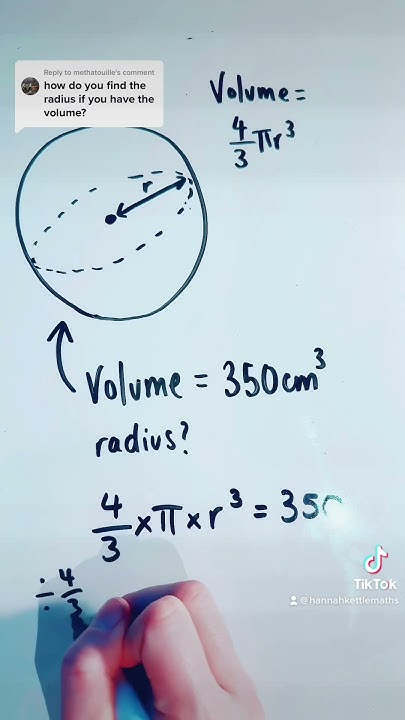 Reply to methatouille's comment
how do you find the
radius if you have the
volume?
Volume =
4/3 πr³
r
Volume = 350cm³
radius?
4/3 × π × r³ = 350
÷ 4/3
TikTok
@hannahkettlemaths